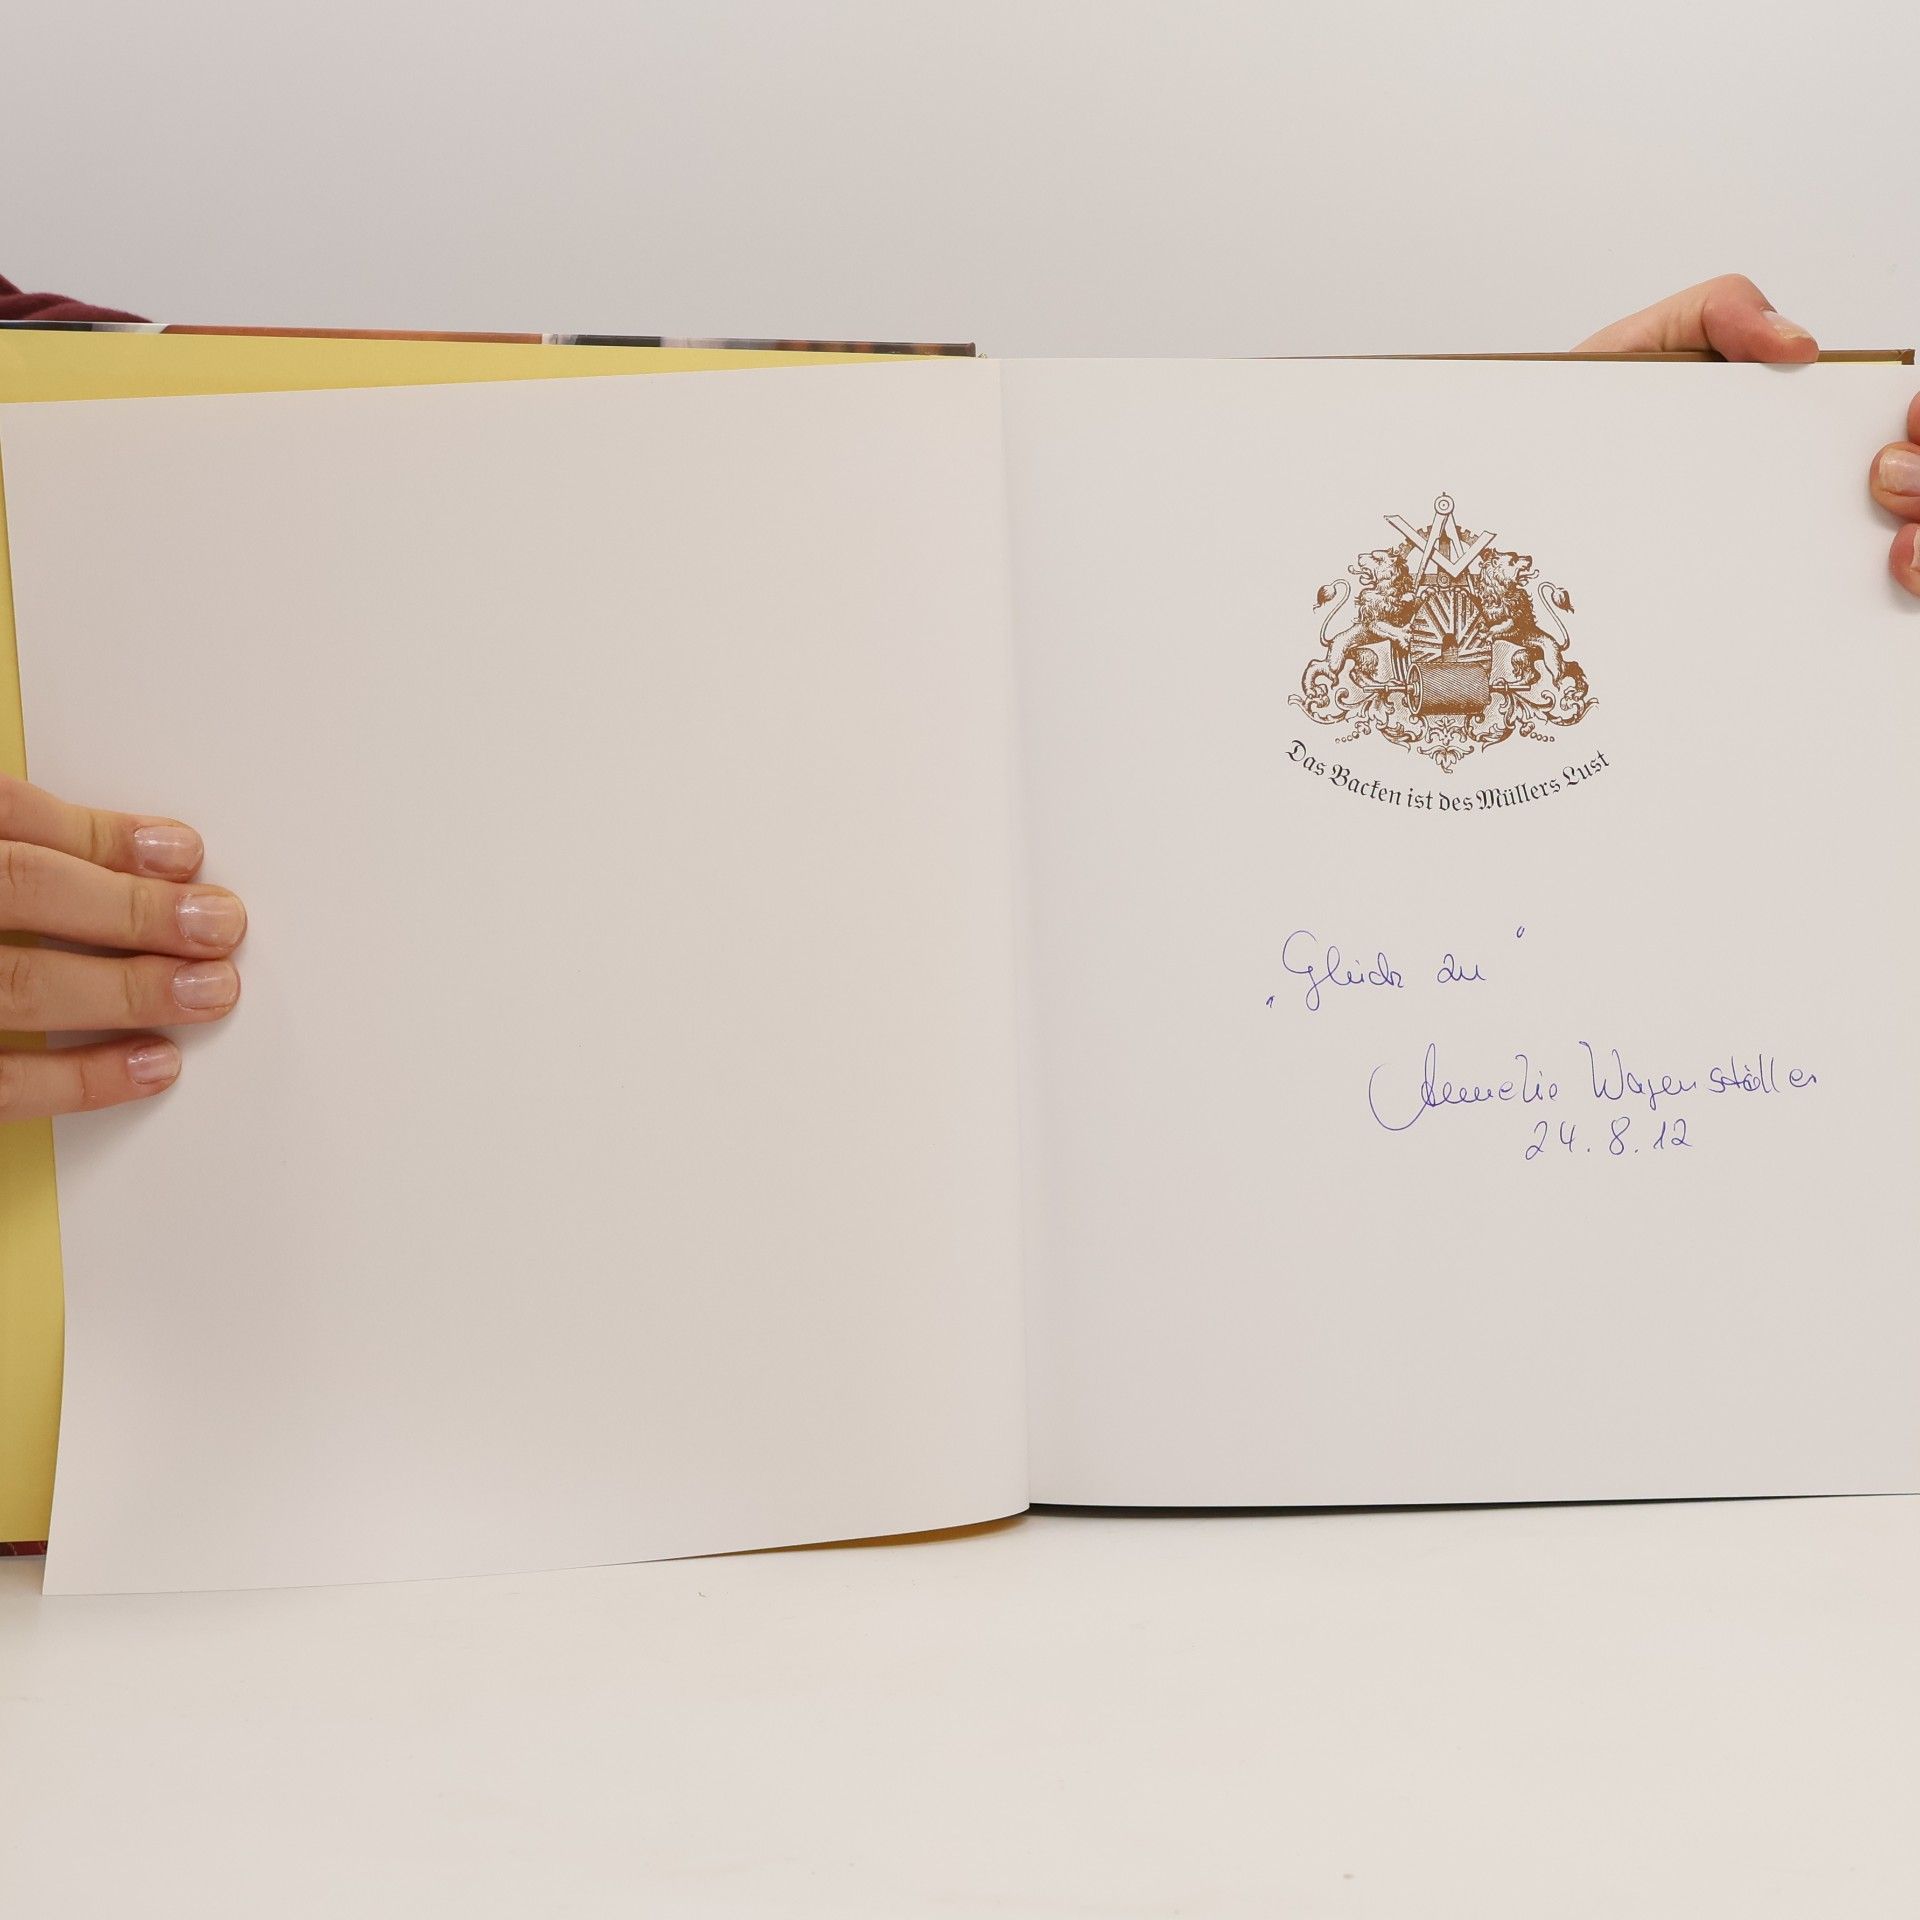 Das Backen ist des Müllers Lust
„Glück zu“
Annelie Wagenstaller
24.8.12